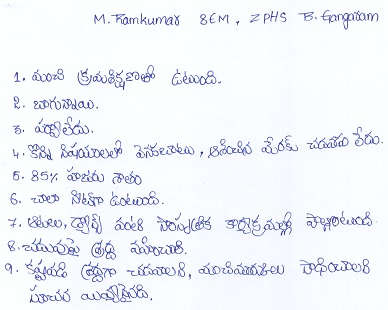 M. Ramkumar SEM, ZPHS B. Gangaram
1. మంచి క్రమశిక్షణతో ఉటుంది.
2. బాగున్నాయి.
3. పర్వాలేదు.
4. కొన్ని విషయాలలో వెనుకబాటు, ఆశించిన మేరకు చదవడం లేదు.
5. 85% హాజరు శాతం
6. చాలా నీట్‌గా ఉంటుంది.
7. ఆటలు, డ్యాన్స్ వంటి సాంస్కృతిక కార్యక్రమాల్లో పాల్గొంటుంది
8. చదువుపై శ్రద్ధ వహించాలి.
9. కష్టపడి శ్రద్ధగా చదవాలని, మంచిమార్కులు సాధించాలని
సూచన యివ్వడమైనది.